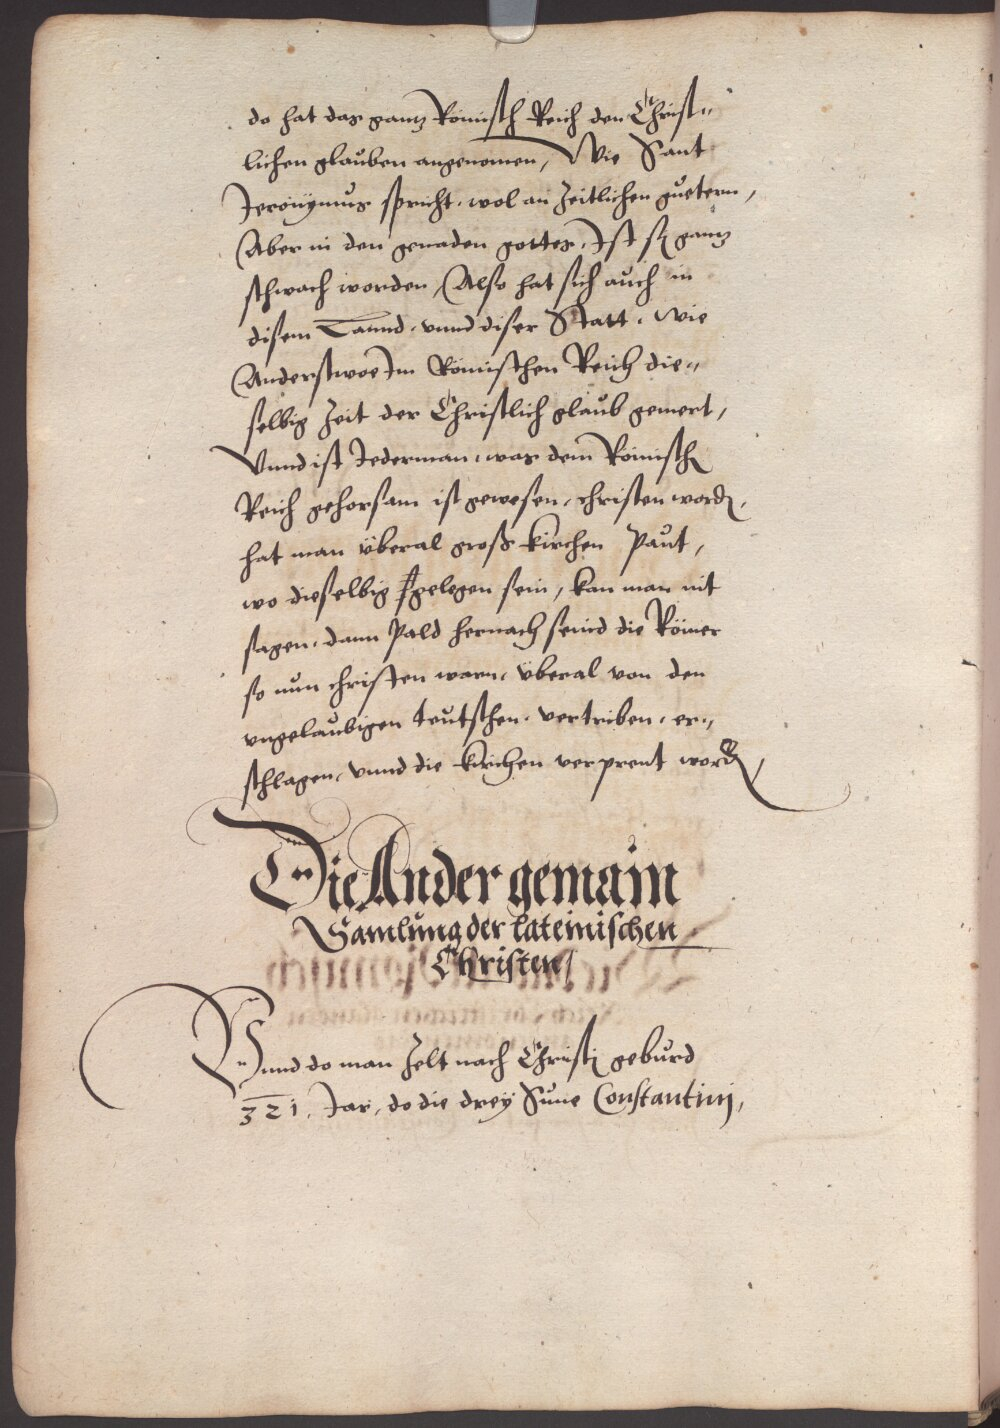 do hat das gantz Römisch Reich den Christ„
lichen glauben angenomen, Wie Sant
Jeronÿmus spricht, wol an Zeitlichen guetern,
Aber in den genaden gottes, Ist sy gantz
schwach worden, Also hat sich auch in
disem Lannd, vnnd diser Statt, wie
Anderstwoe Im Römischen Reich die„
selbig Zeit der Christlich glaub gemert,
Vnnd ist Jederman, was dem Römisch
Reich gehorsam ist gewesen, christen word,
hat man überal groß kirchen Paut,
wo dieselbig gelegen sein, kan man nit
sagen, dann Pald hernach seind die Römer
so nun christen warn, überal von den
vngelaubigen teutschen, vertriben, er„
schlagen, vnnd die kirchen verprent word,
Die Ander gemain
Samlung der lateinischen
Christen,
Vnnd do man Zelt nach Christi geburd
321. Jar, do die dreÿ Süne Constantinj,